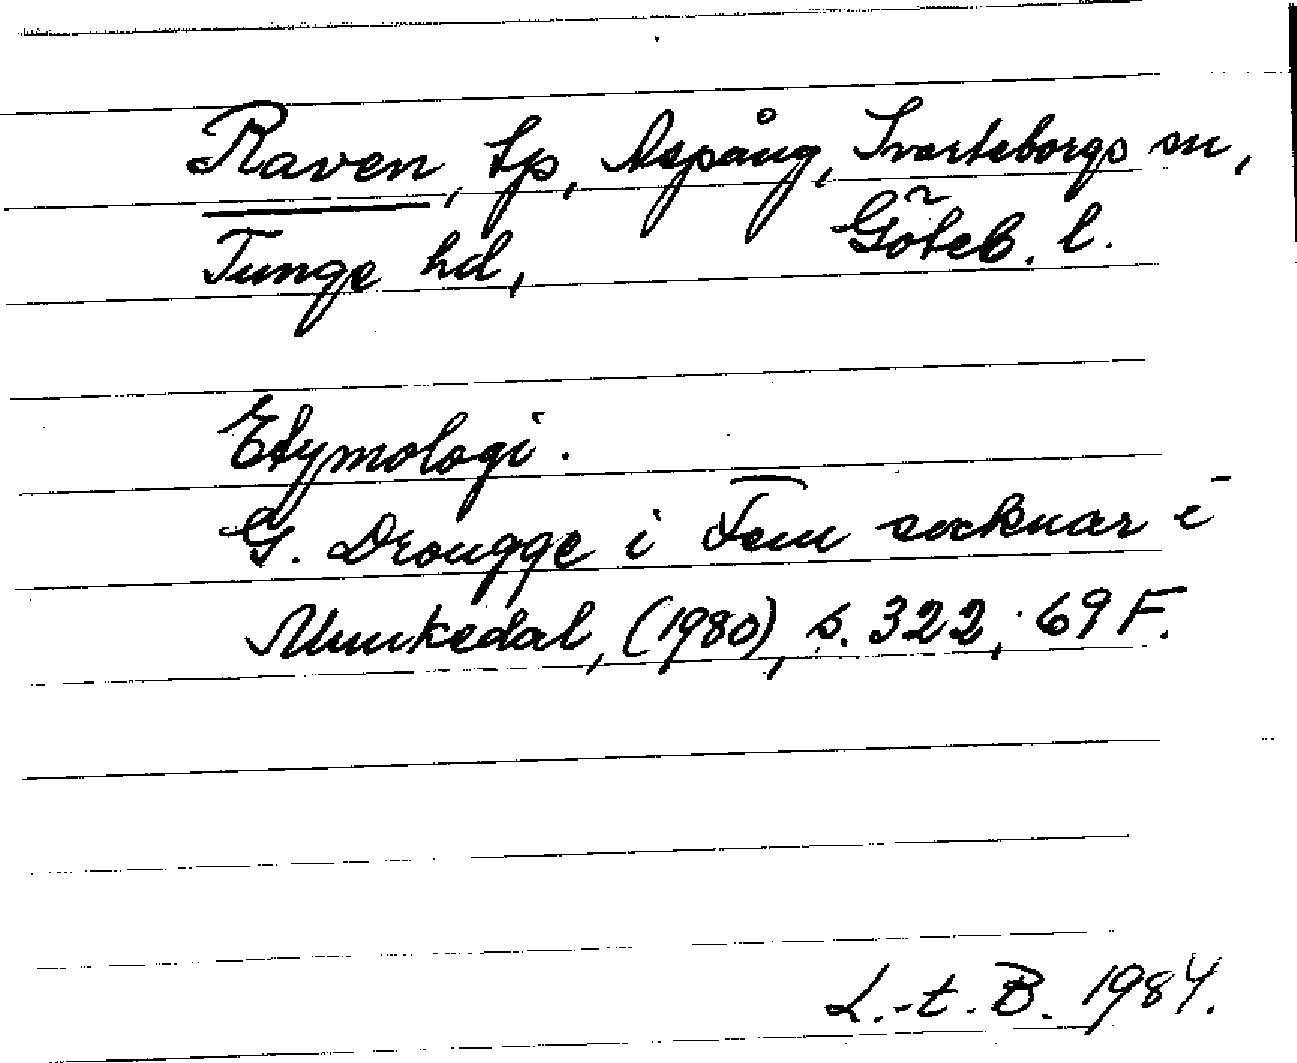 Raven, tp, Aspång, Svarteborgs sn,
Tunge hd, Göteb. l.
Etymologi.
G. Drougge i Fem socknar i
Munkedal, (1980), s. 322, 69 F.
L.-t. B. 1984.